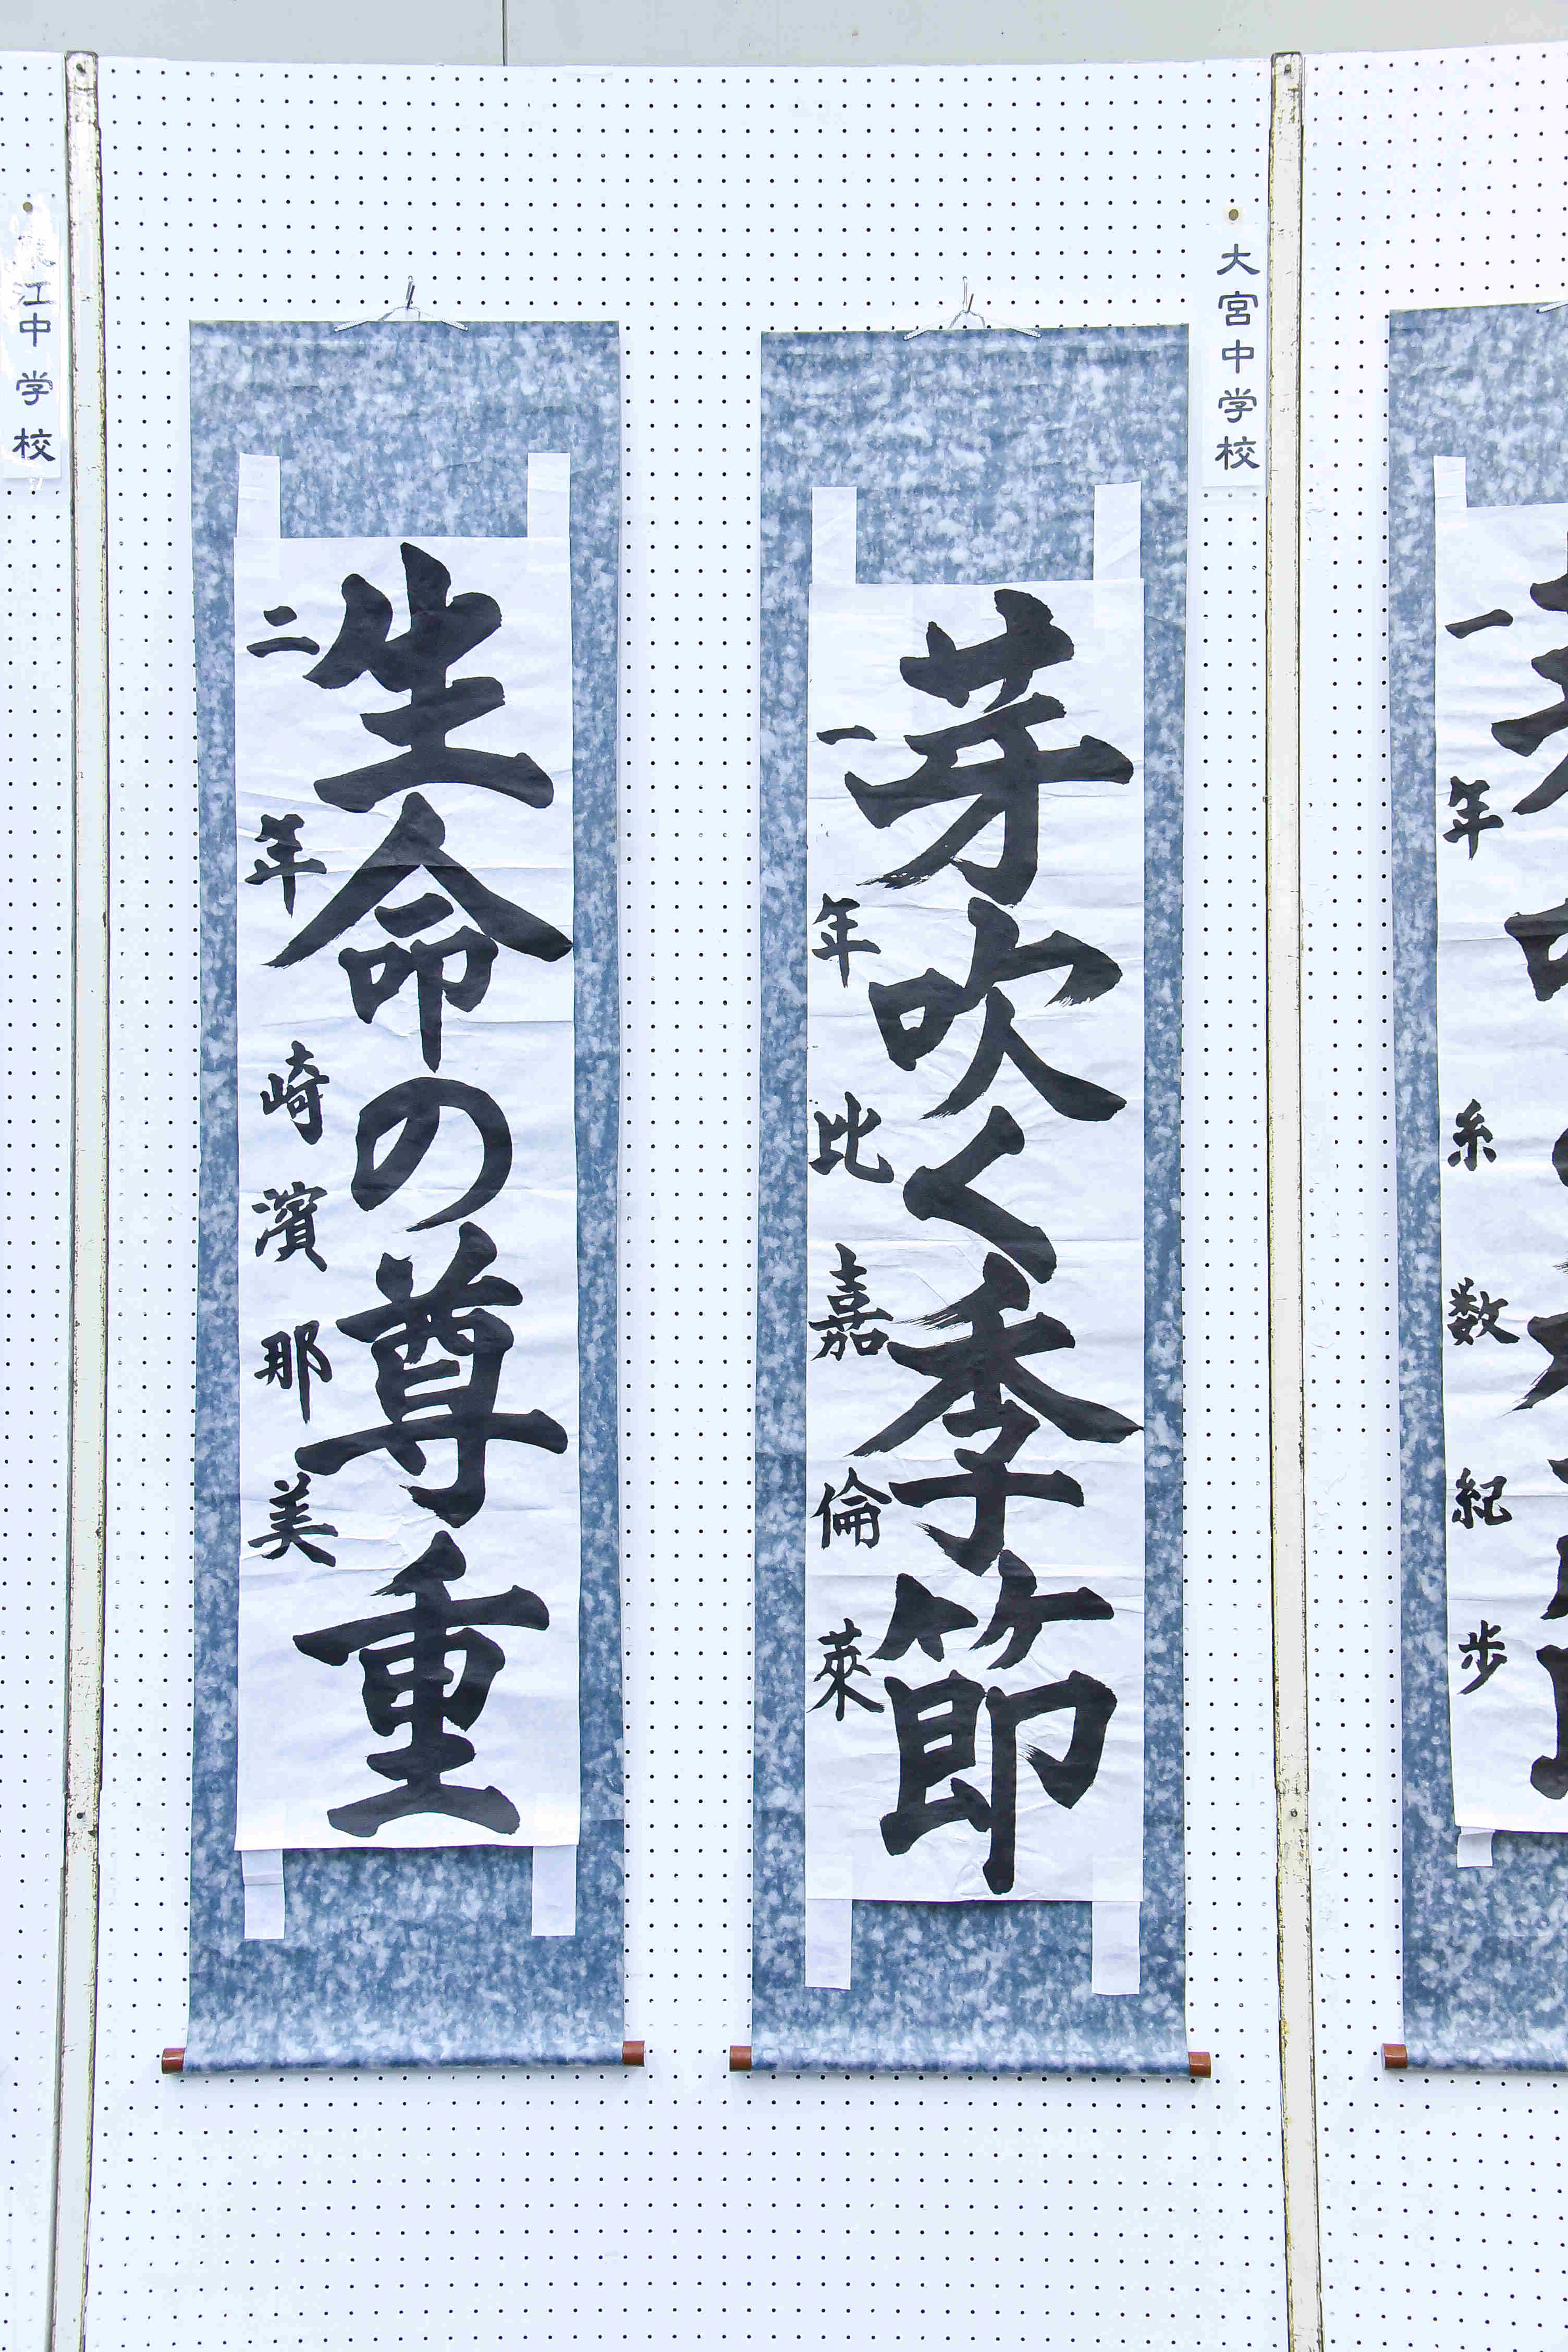 一年 糸数紀歩
大宮中学校
芽吹く季節
一年 比嘉倫萊
生命の尊重
二年 崎濱那美
江中学校